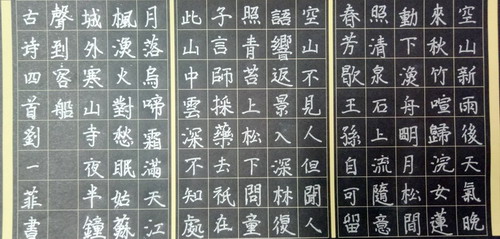 空山新雨後天氣晚
來秋竹喧歸浣女蓮
動下漁舟明月松間
照清泉石上流隨意
春芳歇王孫自可留
空山不見人但聞人
語響返景入深林復
照青苔上松下問童
子言師採藥去祇在
此山中雲深不知處
月落烏啼霜滿天江
楓漁火對愁眠姑蘇
城外寒山寺夜半鐘
聲到客船
古诗四首劉一菲書